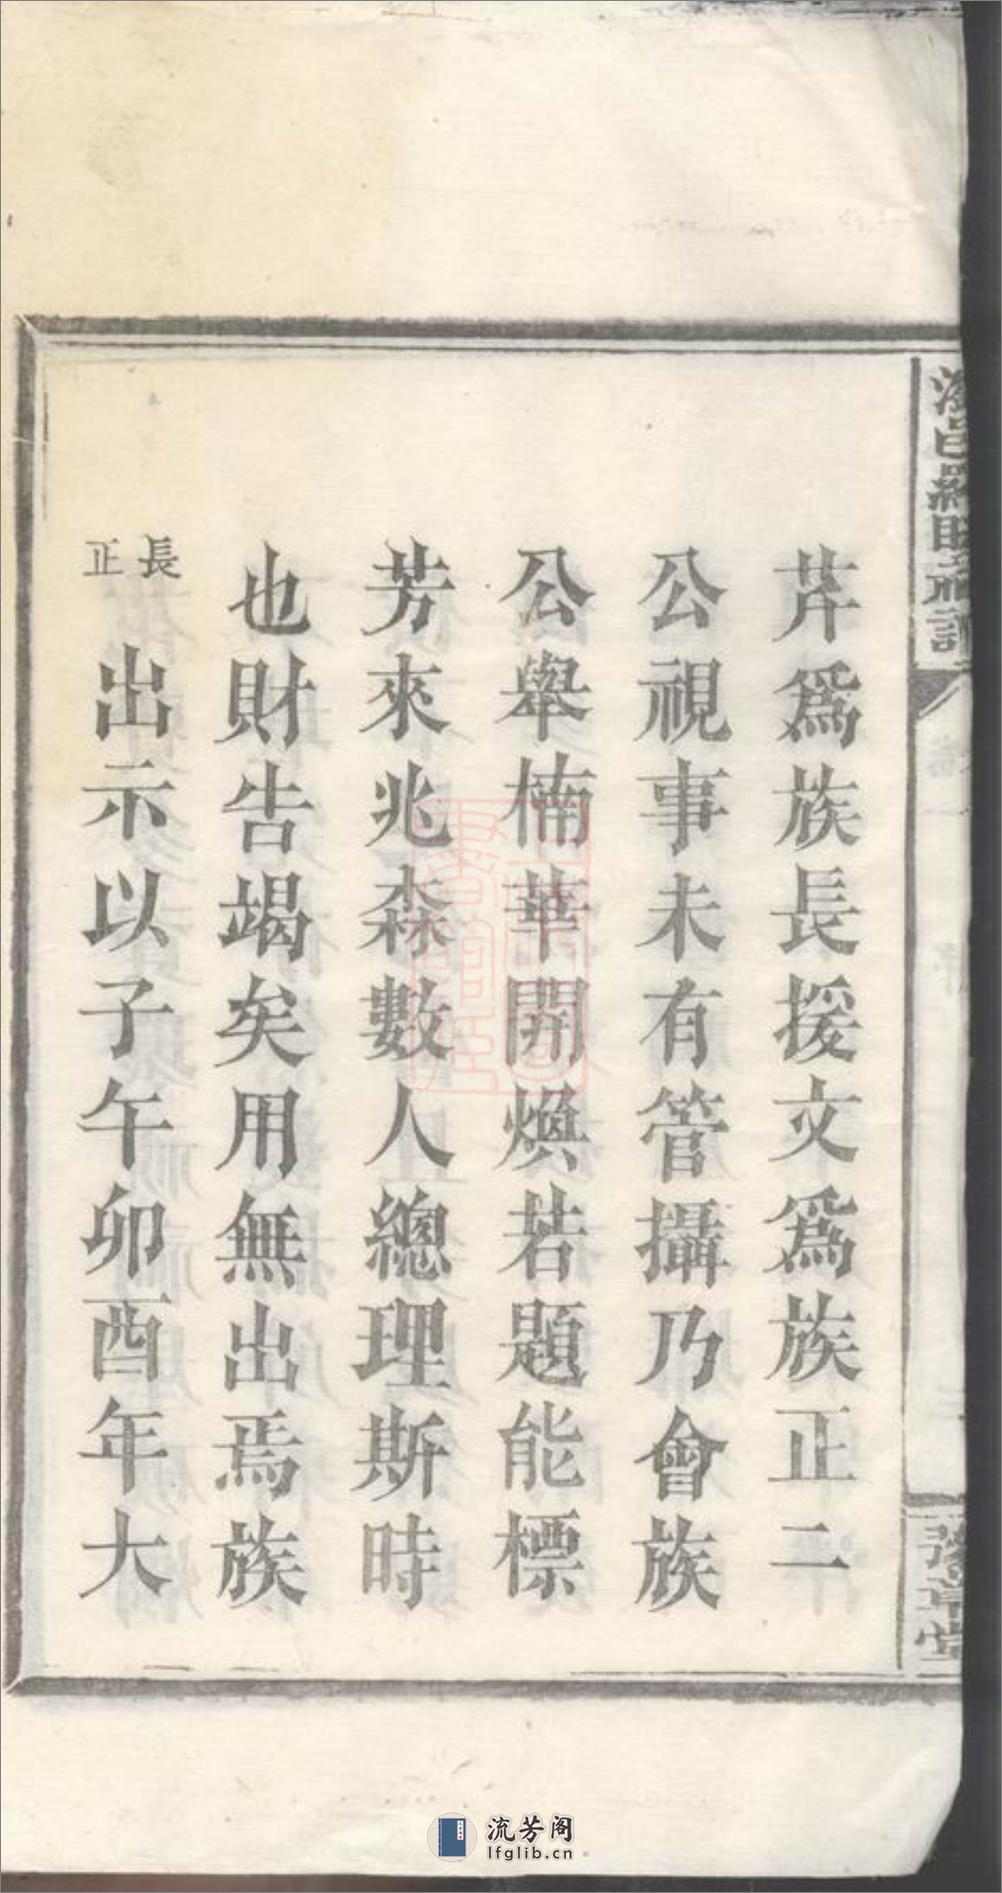 芹爲族長援文爲族正二
公視事未有管攝乃會族
公舉楠華開煥若題能標
芳來兆森數人總理斯時
也財告竭矣用無出焉族
長正出示以子午卯酉年大
豫章堂
流芳阁
lfglib.cn